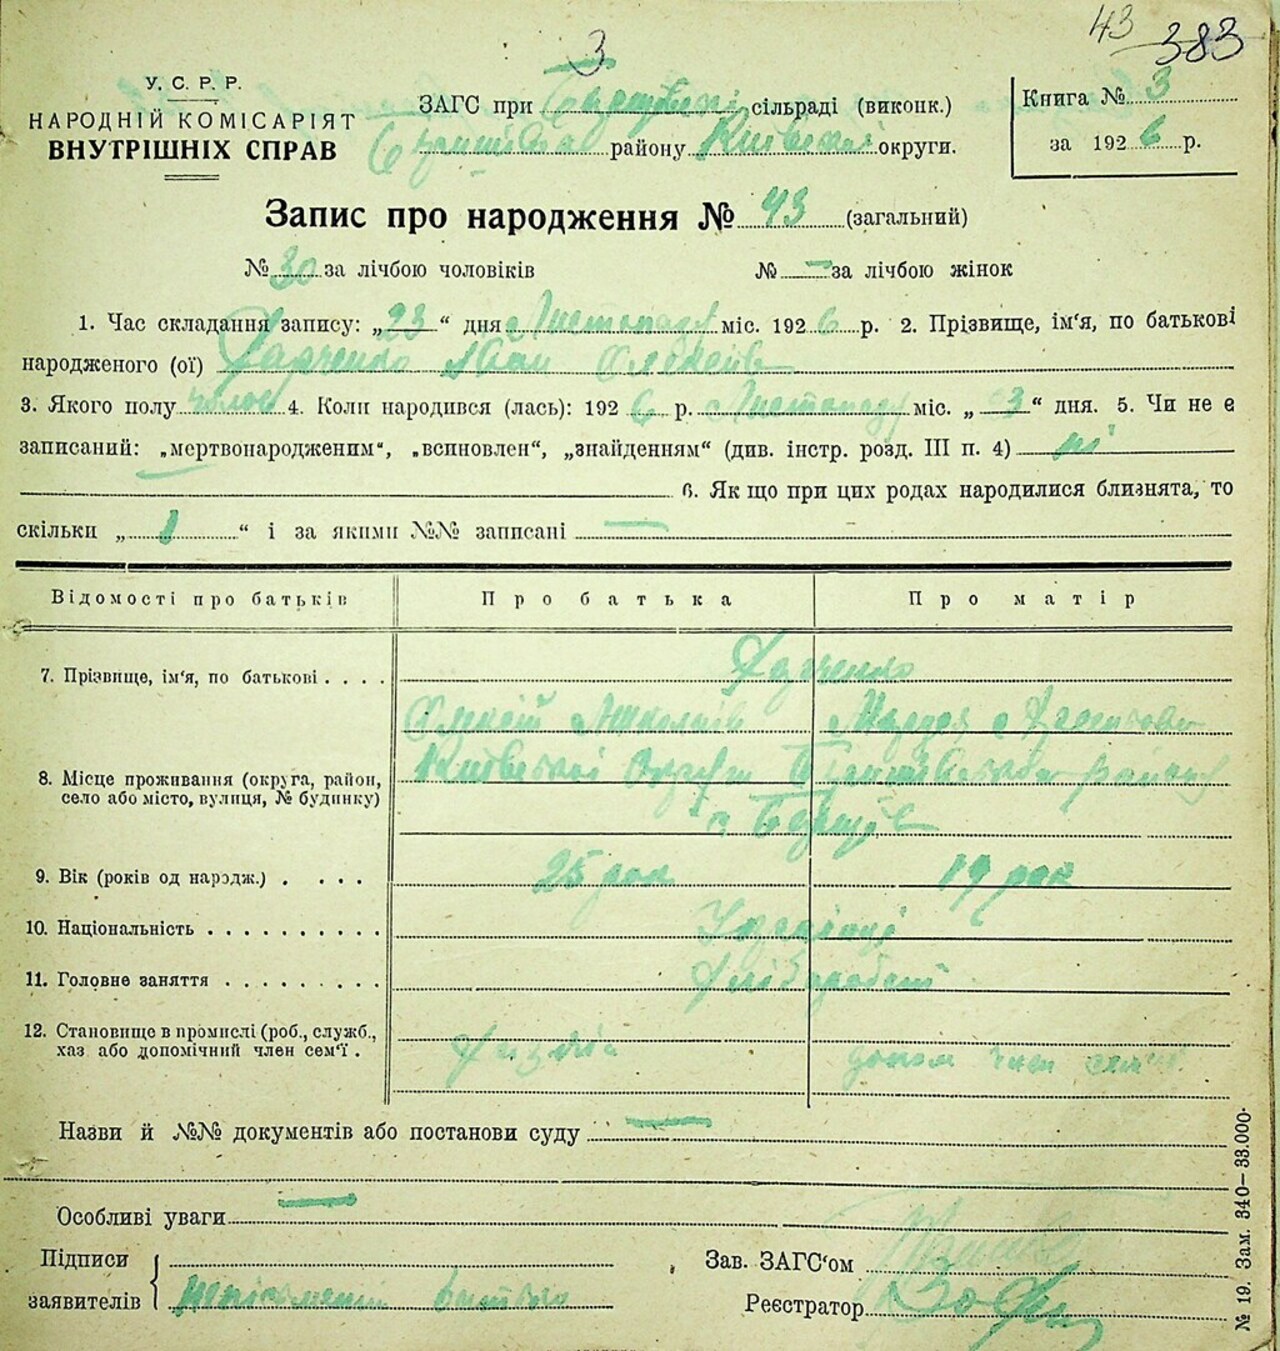 43
383
3
У. С. Р. Р.
НАРОДНІЙ КОМІСАРІЯТ
ВНУТРІШНІХ СПРАВ
ЗАГС при сільраді (виконк.)
району Київської округи.
Книга № 3
за 1926 р.
Запис про народження № 43 (загальний)
№ 30 за лічбою чоловіків
№ — за лічбою жінок
1. Час складання запису: „23“ дня Листопаду міс. 1926 р. 2. Прізвище, ім'я, по батькові
народженого (ої) Харченко Іван Олексіїв
3. Якого полу чолов 4. Коли народився (лась): 1926 р. Листопаду міс. „ 3“ дня. 5. Чи не є
записаний: „мертвонародженим“, „всиновлен“, „знайденням“ (див. інстр. розд. III п. 4) ні
6. Як що при цих родах народилися близнята, то
скільки „1“ і за якими №№ записані —
Відомості про батьків
Про батька
Про матір
7. Прізвище, ім'я, по батькові . . . .
Харченко
Олексій Миколаїв
8. Місце проживання (округа, район,
село або місто, вулиця, № будинку)
Київської Округи району
с
9. Вік (років од народж.) . . . .
25 рок
19 рок
10. Національність . . . . . . . . . .
Українці
11. Головне заняття . . . . . . . . .
Хлібороби
12. Становище в промислі (роб., служб.,
хаз або допомічний член сем'ї .
Хазяїн
допом член сем'ї
Назви й №№ документів або постанови суду —
Особливі уваги —
Підписи
заявителів
батько
Зав. ЗАГС'ом
Реєстратор
№ 19. Зам. 340—33.000.